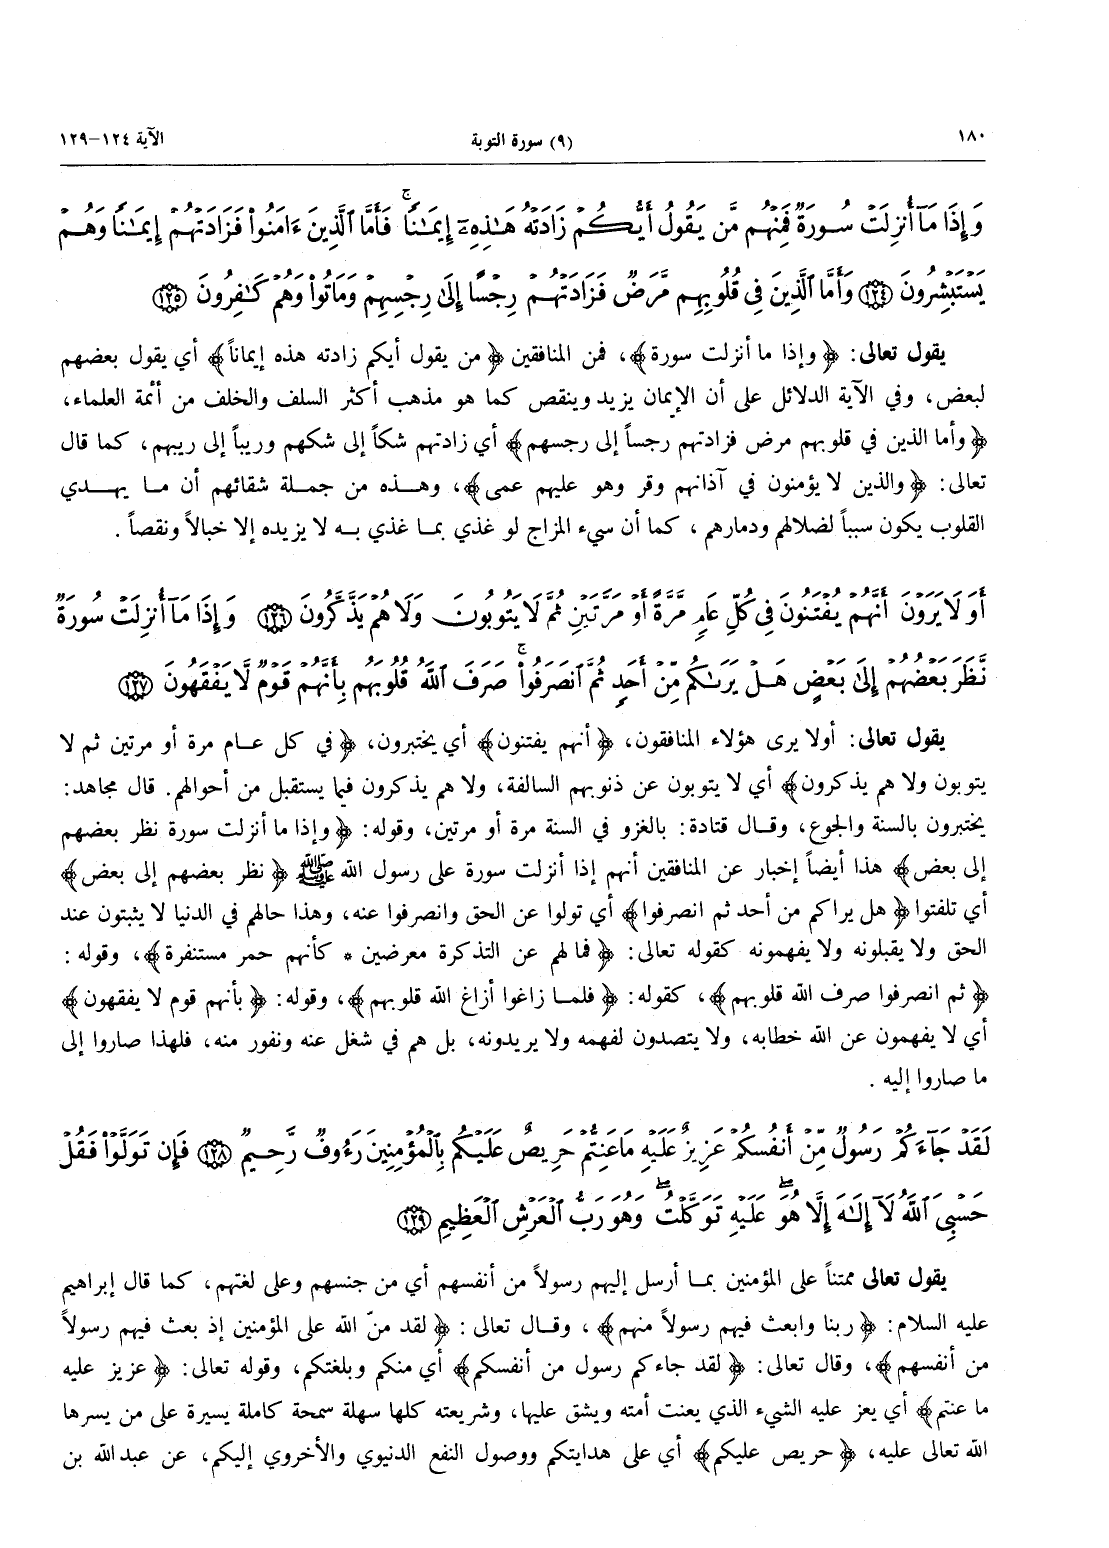 ١٨٠ (٩) سورة التوبة الآية ١٢٤-١٢٩
وَإِذَا مَآ أُنزِلَتْ سُورَةٌ فَمِنْهُم مَّن يَقُولُ أَيُّكُمْ زَادَتْهُ هَٰذِهِۦٓ إِيمَٰنًا ۚ فَأَمَّا ٱلَّذِينَ ءَامَنُوا۟ فَزَادَتْهُمْ إِيمَٰنًا وَهُمْ
يَسْتَبْشِرُونَ ﴿١٢٤﴾ وَأَمَّا ٱلَّذِينَ فِى قُلُوبِهِم مَّرَضٌ فَزَادَتْهُمْ رِجْسًا إِلَىٰ رِجْسِهِمْ وَمَاتُوا۟ وَهُمْ كَٰفِرُونَ ﴿١٢٥﴾
يقول تعالى: ﴿وإذا ما أنزلت سورة﴾، فمن المنافقين ﴿من يقول أيكم زادته هذه إيماناً﴾ أي يقول بعضهم
لبعض، وفي الآية الدلائل على أن الإيمان يزيد وينقص كما هو مذهب أكثر السلف والخلف من أئمة العلماء،
﴿وأما الذين في قلوبهم مرض فزادتهم رجساً إلى رجسهم﴾ أي زادتهم شكاً إلى شكهم وريباً إلى ريبهم، كما قال
تعالى: ﴿والذين لا يؤمنون في آذانهم وقر وهو عليهم عمى﴾، وهذه من جملة شقائهم أن ما يهدي
القلوب يكون سبباً لضلالهم ودمارهم، كما أن سيء المزاج لو غذي بما غذي به لا يزيده إلا خبالاً ونقصاً.
أَوَلَا يَرَوْنَ أَنَّهُمْ يُفْتَنُونَ فِى كُلِّ عَامٍ مَّرَّةً أَوْ مَرَّتَيْنِ ثُمَّ لَا يَتُوبُونَ وَلَا هُمْ يَذَّكَّرُونَ ﴿١٢٦﴾ وَإِذَا مَآ أُنزِلَتْ سُورَةٌ
نَّظَرَ بَعْضُهُمْ إِلَىٰ بَعْضٍ هَلْ يَرَىٰكُم مِّنْ أَحَدٍ ثُمَّ ٱنصَرَفُوا۟ ۚ صَرَفَ ٱللَّهُ قُلُوبَهُم بِأَنَّهُمْ قَوْمٌ لَّا يَفْقَهُونَ ﴿١٢٧﴾
يقول تعالى: أولا يرى هؤلاء المنافقون، ﴿أنهم يفتنون﴾ أي يختبرون، ﴿في كل عام مرة أو مرتين ثم لا
يتوبون ولا هم يذكرون﴾ أي لا يتوبون عن ذنوبهم السالفة، ولا هم يذكرون فيما يستقبل من أحوالهم. قال مجاهد:
يختبرون بالسنة والجوع، وقال قتادة: بالغزو في السنة مرة أو مرتين، وقوله: ﴿وإذا ما أنزلت سورة نظر بعضهم
إلى بعض﴾ هذا أيضاً إخبار عن المنافقين أنهم إذا أنزلت سورة على رسول الله ﷺ ﴿نظر بعضهم إلى بعض﴾
أي تلفتوا ﴿هل يراكم من أحد ثم انصرفوا﴾ أي تولوا عن الحق وانصرفوا عنه، وهذا حالهم في الدنيا لا يثبتون عند
الحق ولا يقبلونه ولا يفهمونه كقوله تعالى: ﴿فما لهم عن التذكرة معرضين * كأنهم حمر مستنفرة﴾، وقوله:
﴿ثم انصرفوا صرف الله قلوبهم﴾، كقوله: ﴿فلما زاغوا أزاغ الله قلوبهم﴾، وقوله: ﴿بأنهم قوم لا يفقهون﴾
أي لا يفهمون عن الله خطابه، ولا يتصدون لفهمه ولا يريدونه، بل هم في شغل عنه ونفور منه، فلهذا صاروا إلى
ما صاروا إليه.
لَقَدْ جَآءَكُمْ رَسُولٌ مِّنْ أَنفُسِكُمْ عَزِيزٌ عَلَيْهِ مَا عَنِتُّمْ حَرِيصٌ عَلَيْكُم بِٱلْمُؤْمِنِينَ رَءُوفٌ رَّحِيمٌ ﴿١٢٨﴾ فَإِن تَوَلَّوْا۟ فَقُلْ
حَسْبِىَ ٱللَّهُ لَآ إِلَٰهَ إِلَّا هُوَ ۖ عَلَيْهِ تَوَكَّلْتُ ۖ وَهُوَ رَبُّ ٱلْعَرْشِ ٱلْعَظِيمِ ﴿١٢٩﴾
يقول تعالى ممتناً على المؤمنين بما أرسل إليهم رسولاً من أنفسهم أي من جنسهم وعلى لغتهم، كما قال إبراهيم
عليه السلام: ﴿ربنا وابعث فيهم رسولاً منهم﴾، وقال تعالى: ﴿لقد منّ الله على المؤمنين إذ بعث فيهم رسولاً
من أنفسهم﴾، وقال تعالى: ﴿لقد جاءكم رسول من أنفسكم﴾ أي منكم وبلغتكم، وقوله تعالى: ﴿عزيز عليه
ما عنتم﴾ أي يعز عليه الشيء الذي يعنت أمته ويشق عليها، وشريعته كلها سهلة سمحة كاملة يسيرة على من يسرها
الله تعالى عليه، ﴿حريص عليكم﴾ أي على هدايتكم ووصول النفع الدنيوي والأخروي إليكم، عن عبد الله بن